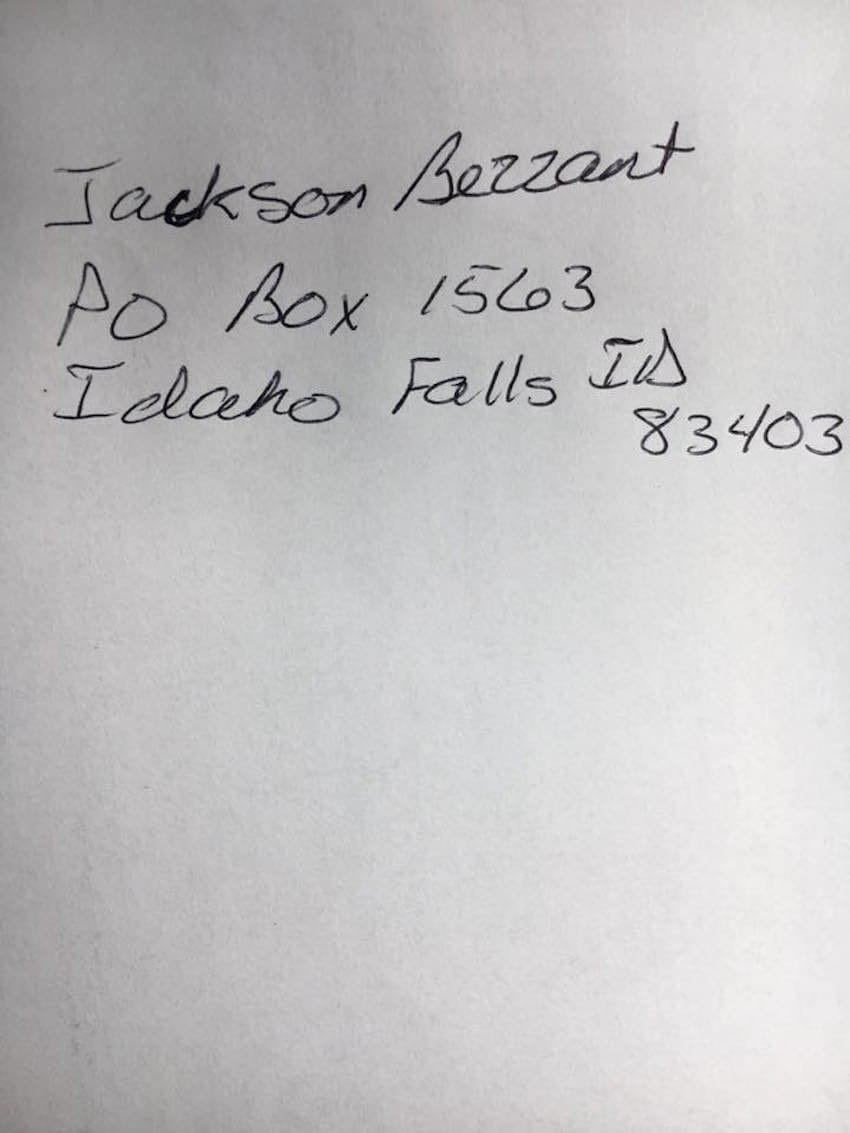 Jackson Bezzant
PO Box 1563
Idaho Falls ID
83403